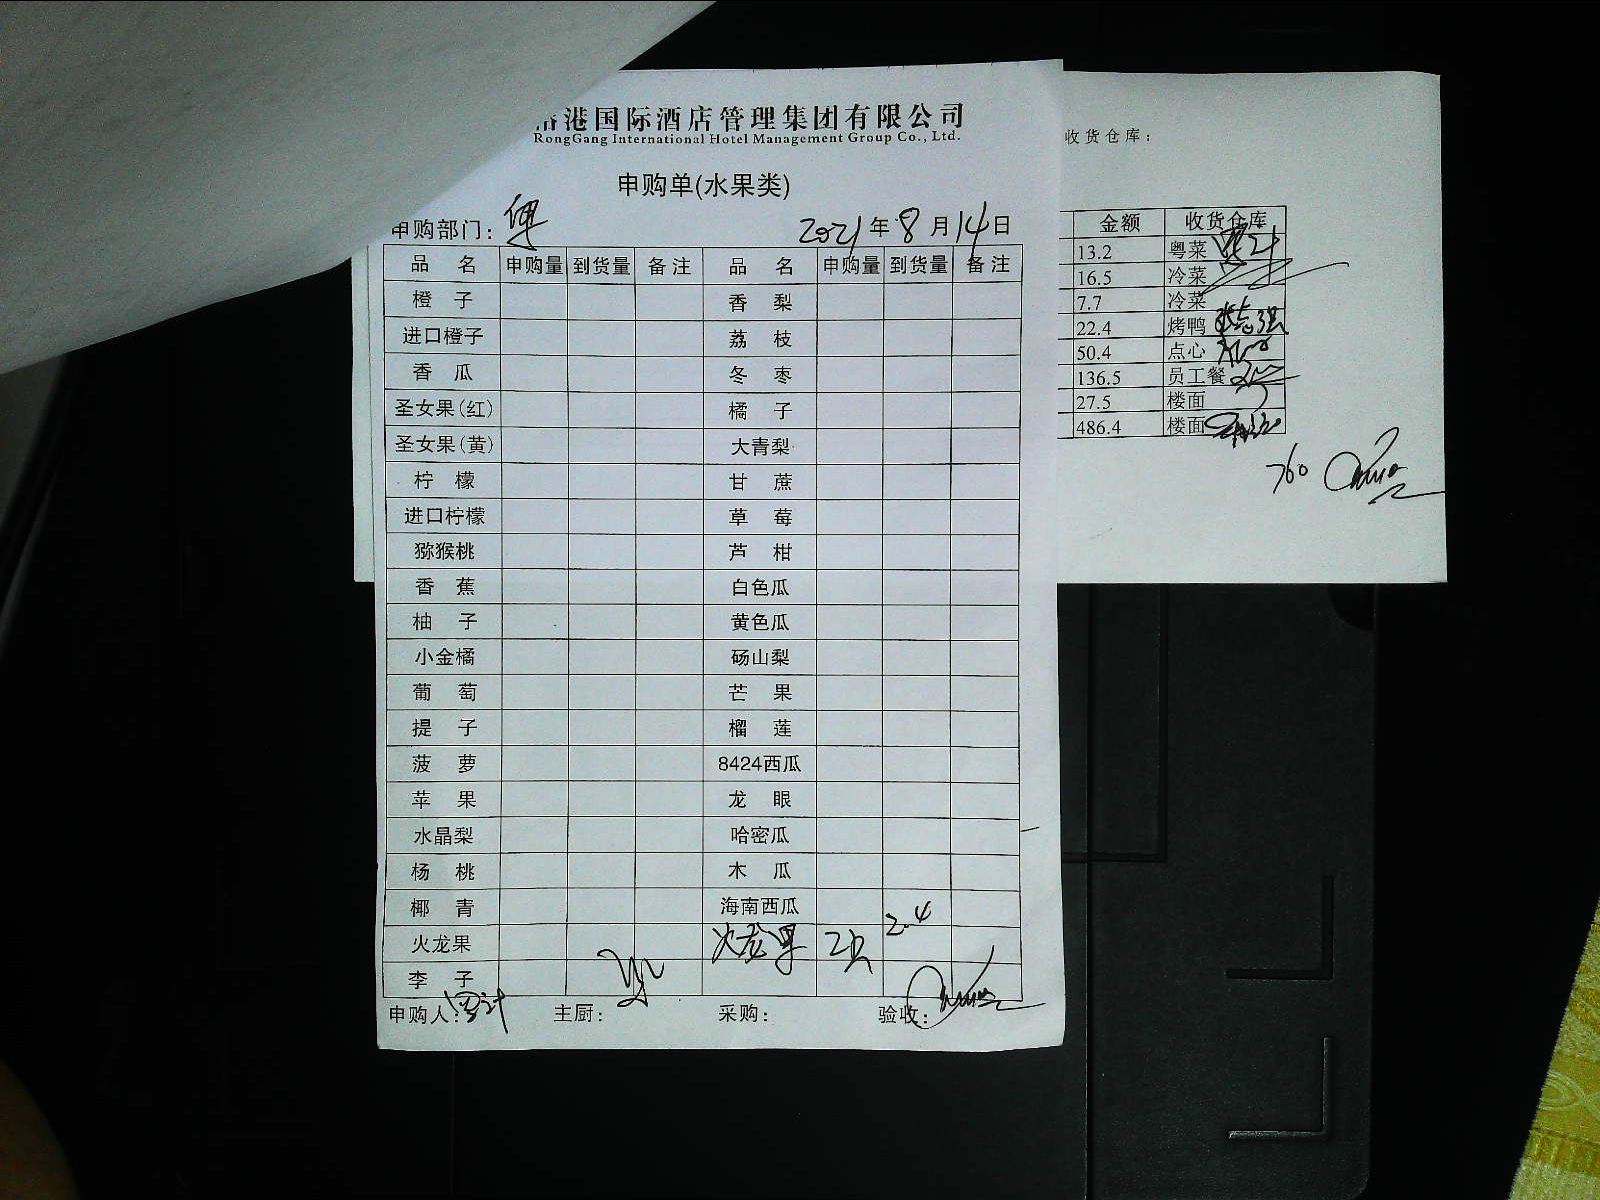 港国际酒店管理集团有限公司
RongGang International Hotel Management Group Co., Ltd.
申购单(水果类)
申购部门:
2021年8月14日
品名 申购量 到货量 备注 品名 申购量 到货量 备注
橙子 香梨
进口橙子 荔枝
香瓜 冬枣
圣女果(红) 橘子
圣女果(黄) 大青梨
柠檬 甘蔗
进口柠檬 草莓
猕猴桃 芦柑
香蕉 白色瓜
柚子 黄色瓜
小金橘 砀山梨
葡萄 芒果
提子 榴莲
菠萝 8424西瓜
苹果 龙眼
水晶梨 哈密瓜
杨桃 木瓜
椰青 海南西瓜
火龙果 火龙果 2只 2.4
李子
申购人: 主厨: 采购: 验收:
收货仓库:
金额 收货仓库
13.2 粤菜
16.5 冷菜
7.7 冷菜
22.4 烤鸭
50.4 点心
136.5 员工餐
27.5 楼面
486.4 楼面
760